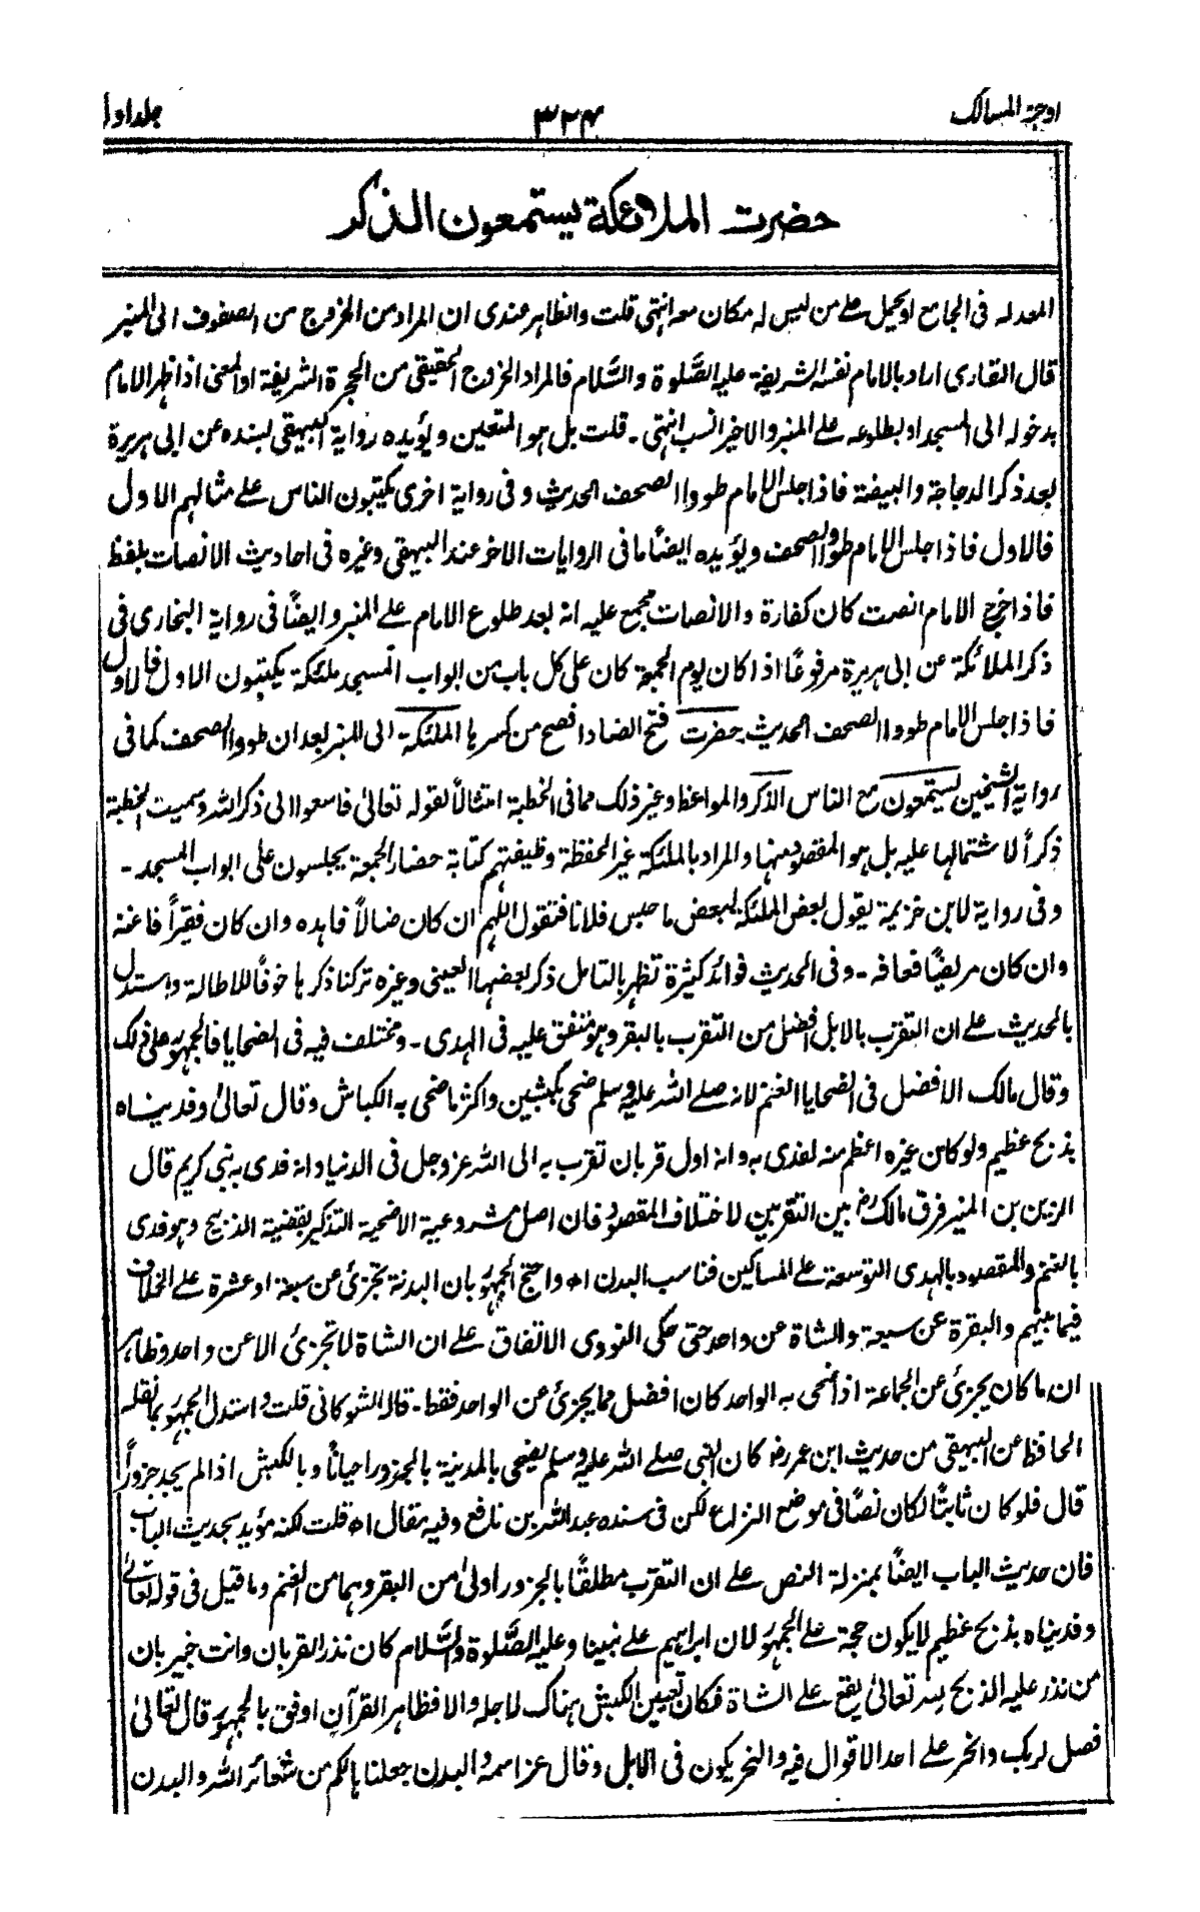 اوجز المسالك
٣٢٤
جلد اول
حضرت الملائكة يستمعون الذكر
المعد له فى الجامع او يحمل على من ليس له مكان معد انتهى قلت والظاهر عندى ان المراد من الخروج من الصفوف الى المنبر
قال القارى اراد بالامام نفسه الشريفة عليه الصّلوة والسّلام فالمراد الخروج الحقيقى من الحجرة الشريفة او المعنى اذا ظهر الامام
بدخوله الى المسجد او بطلوعه على المنبر والاخير انسب انتهى ۔ قلت بل هو المتعين ويؤيده رواية البيهقى بسنده عن ابى هريرة
بعد ذكر الدجاجة والبيضة فاذا جلس الامام طووا الصحف الحديث وفى رواية اخرى يكتبون الناس على منازلهم الاول
فالاول فاذا جلس الامام طووا الصحف ويؤيده ايضًا ما فى الروايات الاخر عند البيهقى وغيره فى احاديث الانصات بلفظ
فاذا خرج الامام انصت كان كفارة والانصات مجمع عليه انه بعد طلوع الامام على المنبر وايضًا فى رواية البخارى فى
ذكر الملائكة عن ابى هريرة مرفوعًا اذا كان يوم الجمعة كان على كل باب من ابواب المسجد ملئكة يكتبون الاول فالاول
فاذا جلس الامام طووا الصحف الحديث حضرت فتح الضاد افصح من كسرها الملئكة الى المنبر بعد ان طووا الصحف كما فى
رواية الشيخين يستمعون مع الناس الذكر والمواعظ وغير ذلك مما فى الخطبة امتثالًا لقوله تعالىٰ فاسعوا الى ذكر الله وسميت الخطبة
ذكراً لاشتمالها عليه بل هو المقصود منها والمراد بالملئكة غير الحفظة وظيفتهم كتابة حضار الجمعة يجلسون على ابواب المسجد ۔
وفى رواية لابن خزيمة يقول بعض الملئكة لبعض ما حبس فلانا فتقول اللهم ان كان ضالاً فاهده وان كان فقيراً فاغنه
وان كان مريضًا فعافه ۔ وفى الحديث فوائد كثيرة تظهر بالتامل ذكر بعضها العينى وغيره تركنا ذكرها خوفًا للاطالة واستدل
بالحديث على ان التقرب بالابل افضل من التقرب بالبقر وهو متفق عليه فى الهدى ۔ ومختلف فيه فى الضحايا فالجمهور على ذلك
وقال مالك الافضل فى الضحايا الغنم لانه صلى الله عليه وسلم ضحى بكبشين واكثر ما ضحى به الكباش وقال تعالىٰ وفديناه
بذبح عظيم ولو كان غيره اعظم منه لفدى به وانه اول قربان تقرب به الى الله عز وجل فى الدنيا وانه فدى به نبى كريم قال
الزين بن المنير فرق مالك رض بين التقربين لاختلاف المقصود فان اصل مشروعية الاضحية التذكير بقضية الذبيح وهو فدى
بالغنم والمقصود بالهدى التوسعة على المساكين فناسب البدن اه واحتج الجمهور بان البدنة تجزئ عن سبعة او عشرة على الخلاف
فيما بينهم والبقرة عن سبعة والشاة عن واحد حتى حكى النووى الاتفاق على ان الشاة لا تجزئ الا عن واحد وظاهر
ان ما كان يجزئ عن الجماعة اذا ضحى به الواحد كان افضل مما يجزئ عن الواحد فقط ۔ قاله الشوكانى قلت واستدل الجمهور بما نقله
الحافظ عن البيهقى من حديث ابن عمر رض كان النبى صلى الله عليه وسلم يضحى بالمدينة بالجزور احيانًا وبالكبش اذا لم يجد جزوراً
قال فلو كان ثابتًا لكان نصًا فى موضع النزاع لكن فى سنده عبد الله بن نافع وفيه مقال اه قلت لكنه مؤيد بحديث الباب
فان حديث الباب ايضًا بمنزلة النص على ان التقرب مطلقًا بالجزور اولىٰ من البقر وهما من الغنم وما قيل فى قوله تعالىٰ
وفديناه بذبح عظيم لا يكون حجة على الجمهور لان ابراهيم على نبينا وعليه الصّلوة والسّلام كان نذر القربان وانت خبير بان
من نذر عليه الذبح لله تعالىٰ يقع على الشاة فكان تعيين الكبش هناك لاجله والا فظاهر القرآن اوفق بالجمهور قال تعالىٰ
فصل لربك وانحر على احد الاقوال فيه والنحر يكون فى الابل وقال عز اسمه والبدن جعلناها لكم من شعائر الله والبدن